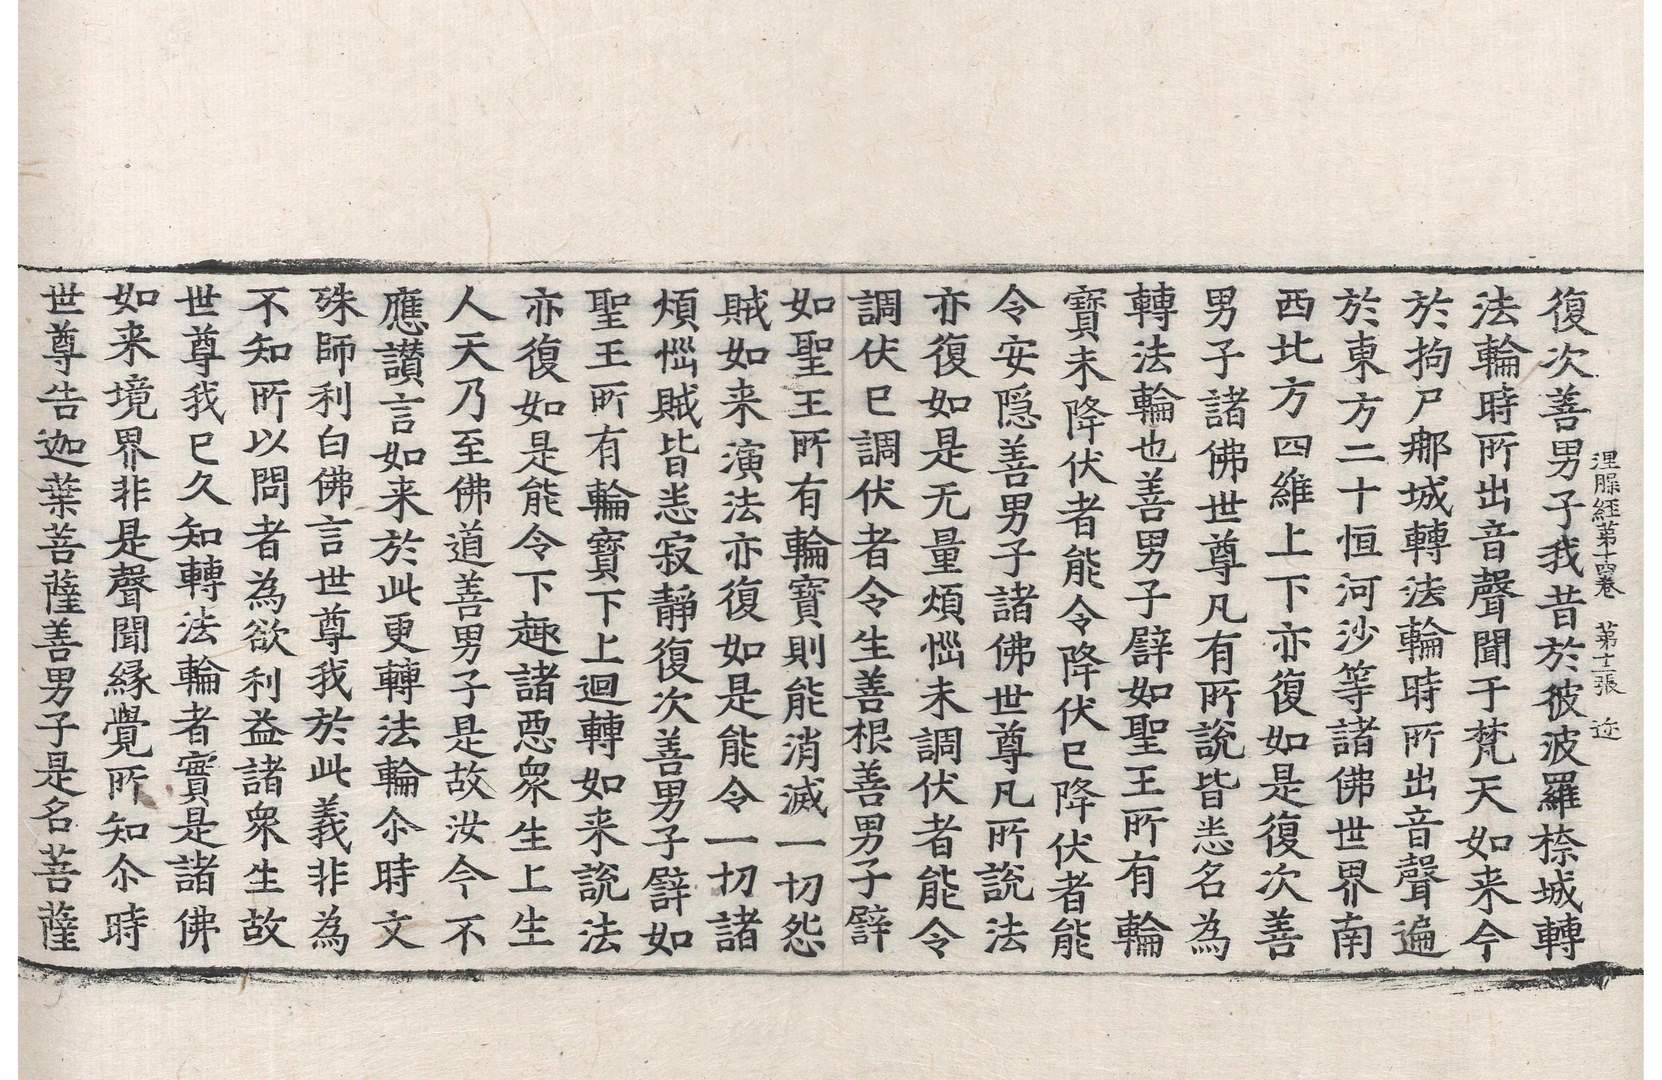 涅縣经苐十四卷 苐十二張 迩
復次善男子我昔於彼波羅㮈城轉
法輪時所出音聲聞于梵天如来今
於拘尸那城轉法輪時所出音聲遍
於東方二十恒河沙等諸佛世界南
西北方四維上下亦復如是復次善
男子諸佛世尊凡有所說皆悉名為
轉法輪也善男子譬如聖王所有輪
寶未降伏者能令降伏已降伏者能
令安隠善男子諸佛世尊凡所說法
亦復如是无量煩惱未調伏者能令
調伏已調伏者令生善根善男子譬
如聖王所有輪寶則能消滅一切怨
賊如来演法亦復如是能令一切諸
煩惱賊皆悉寂靜復次善男子譬如
聖王所有輪寶下上迴轉如来說法
亦復如是能令下趣諸惡衆生上生
人天乃至佛道善男子是故汝今不
應讃言如来於此更轉法輪尒時文
殊師利白佛言世尊我於此義非為
不知所以問者為欲利益諸衆生故
世尊我已久知轉法輪者實是諸佛
如来境界非是聲聞緣覺所知尒時
世尊告迦葉菩薩善男子是名菩薩